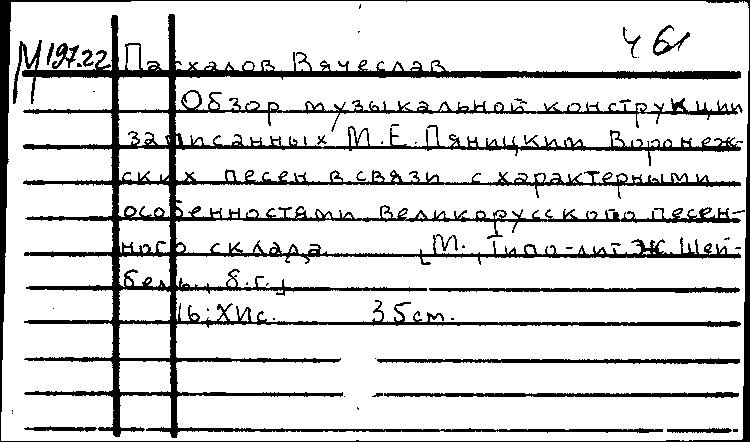 461
М197.22 Пасхалов, Вячеслав
Обзор музыкальной конструкции
записанных М.Е.Пяницким Воронеж-
ских песен в связи с характерными
особенностями великорусского песен-
ного склада. [М., Типо-лит. Ж. Шей-
бель, б.г.]
16; XIIс. 35см.